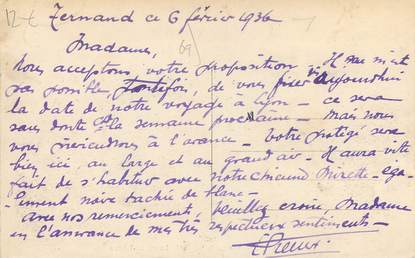 Zernand ce 6 févrir 1936
Madame,
Nous acceptons votre proposition Il ne m'est
pas possible, toutefois, de vous fixer aujourdhui
la date de notre voyage à Lyon - ce sera
sans doute la semaine prochaine - mais nous
vous préviendrons à l'avance - Votre protégé sera
bien ici au large et au grand air - Il aura vite
fait de s'habituer avec notre Mirette - éga-
lement noire tachée de blanc -
Avec nos remerciements, veuillez croire, Madame
en l'assurance de mes très respectueux sentiments -